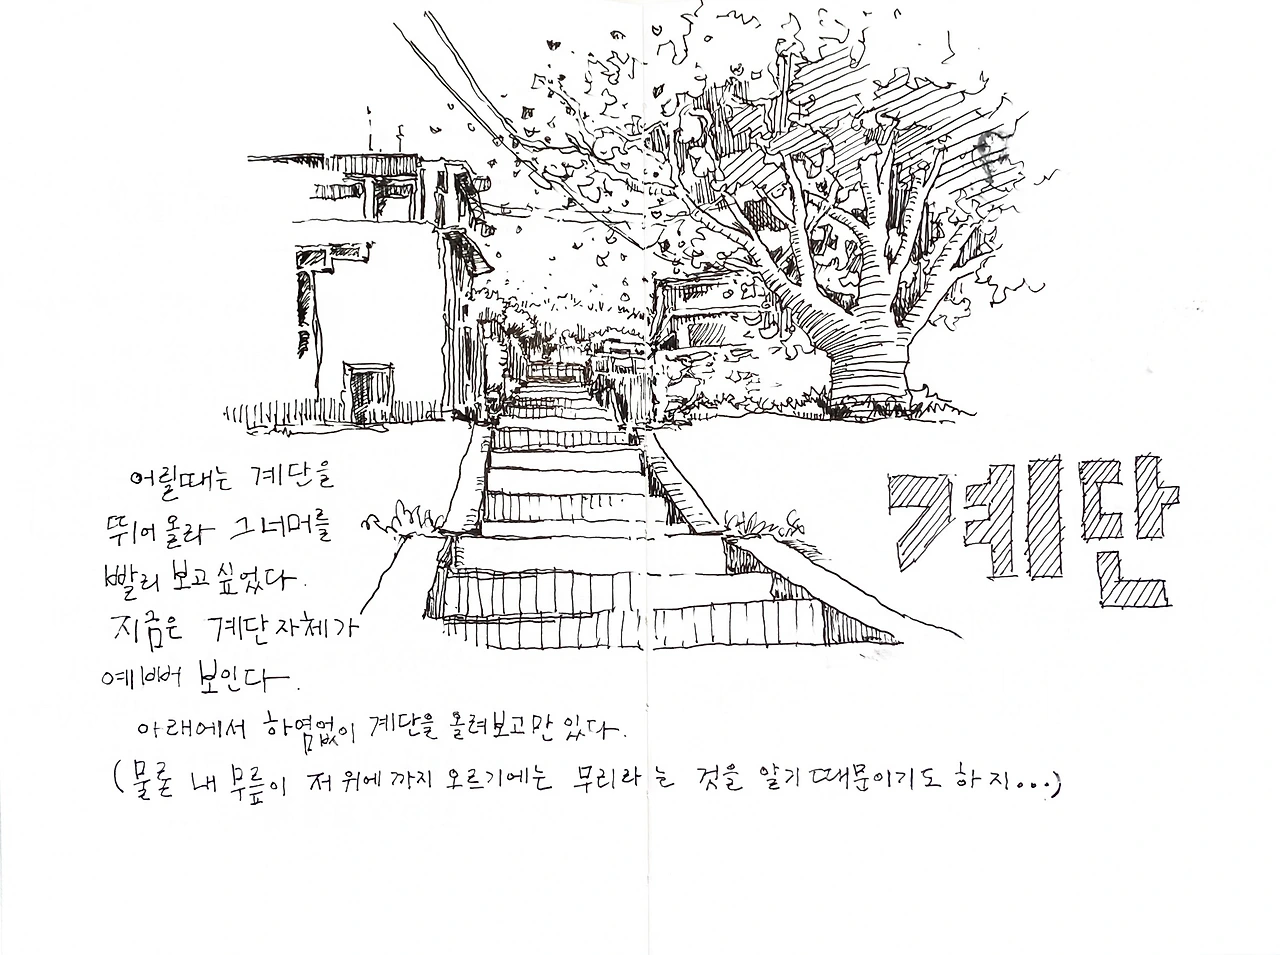 어릴때는 계단을
뛰어 올라 그 너머를
빨리 보고 싶었다.
지금은 계단 자체가
예뻐 보인다.
아래에서 하염없이 계단을 올려보고만 있다.
(물론 내 무릎이 저 위에 까지 오르기에는 무리라는 것을 알기 때문이기도 하지...)
계단